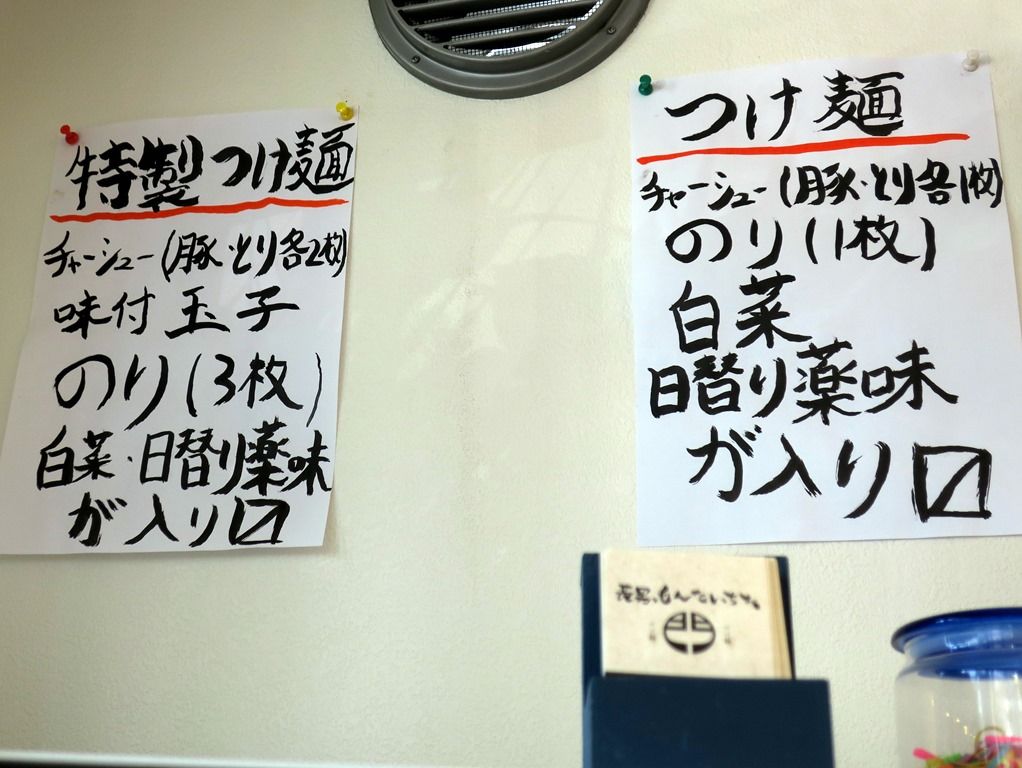 特製つけ麺
チャーシュー(豚・とり各2枚)
味付玉子
のり(3枚)
白菜・日替り薬味
が入り〼
つけ麺
チャーシュー(豚・とり各1枚)
のり(1枚)
白菜
日替り薬味
が入り〼